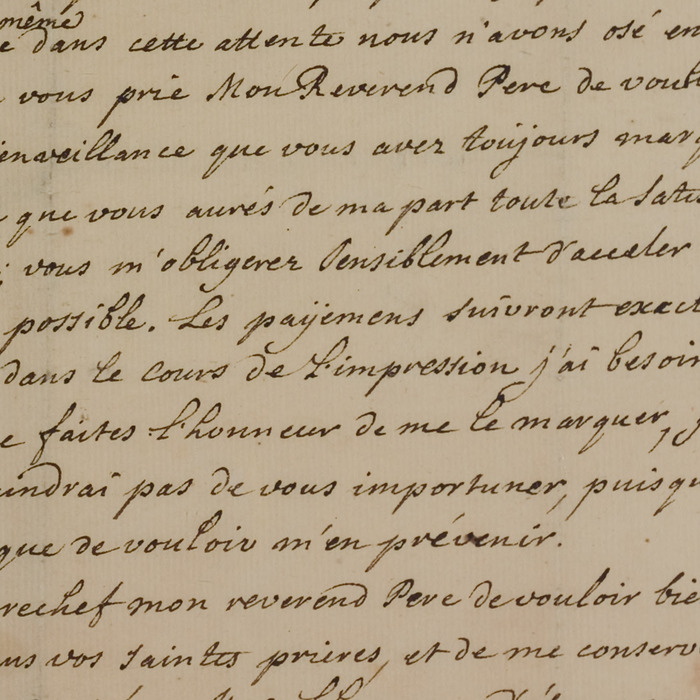 même
e dans cette attente nous n'avons osé en
vous prie Mon Reverend Pere de voul
ienveillance que vous avez toujours marq
que vous aurés de ma part toute la satis
; vous m'obligerez sensiblement d'acceler
possible. Les payemens suivront exact
dans le cours de l'impression j'ai besoin
e faites l'honneur de me le marquer, j
indrai pas de vous importuner, puisqu
que de vouloir m'en prévenir.
rechef mon reverend Pere de vouloir bie
ns vos saintes prieres, et de me conserv